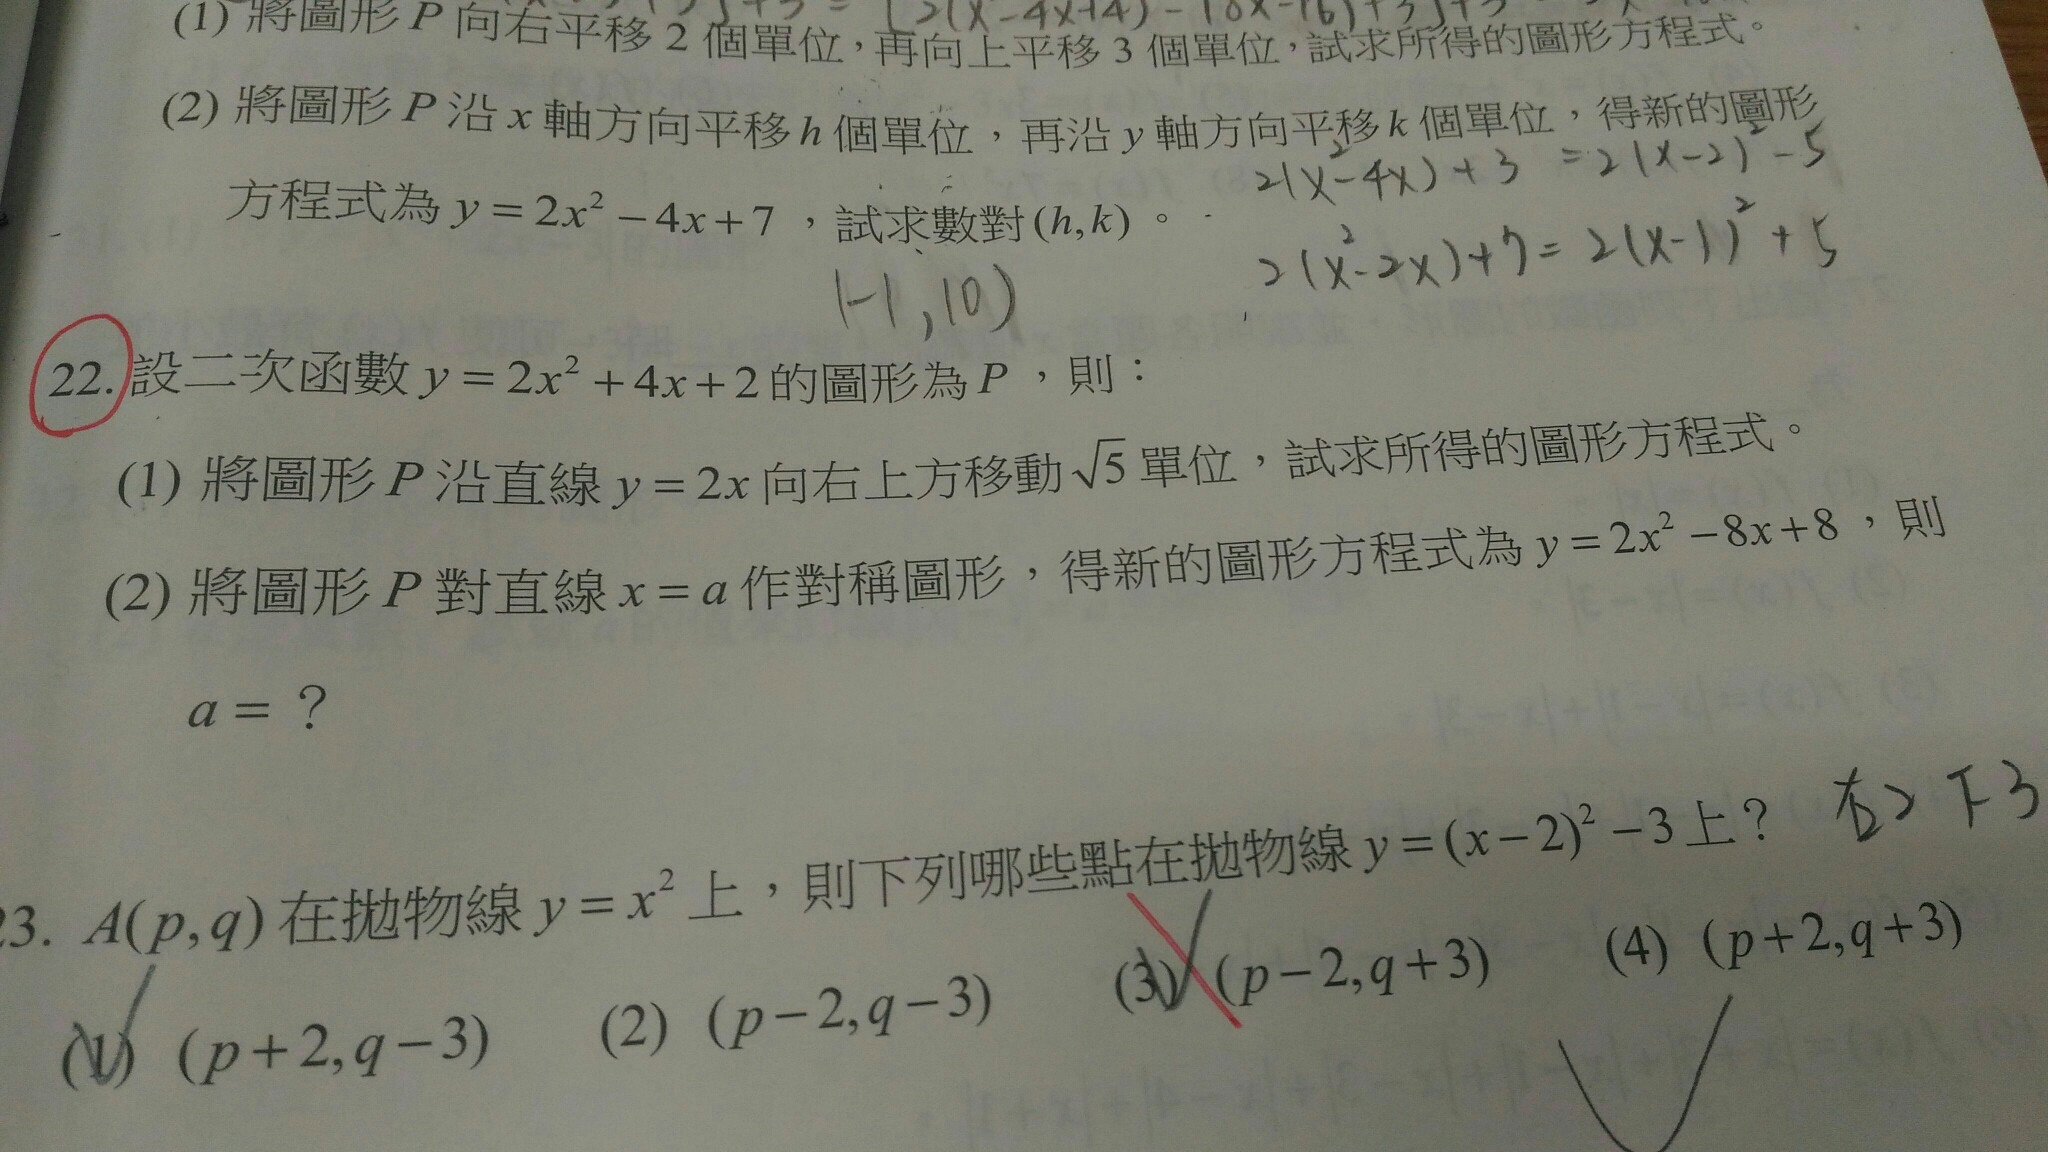 (1) 將圖形 P 向右平移 2 個單位，再向上平移 3 個單位，試求所得的圖形方程式。
(2) 將圖形 P 沿 x 軸方向平移 h 個單位，再沿 y 軸方向平移 k 個單位，得新的圖形
2(x²-4x)+3 = 2(x-2)²-5
方程式為 y = 2x² − 4x + 7 ，試求數對 (h, k) 。
2(x²-2x)+7 = 2(x-1)²+5
(-1, 10)
22. 設二次函數 y = 2x² + 4x + 2 的圖形為 P ，則：
(1) 將圖形 P 沿直線 y = 2x 向右上方移動 √5 單位，試求所得的圖形方程式。
(2) 將圖形 P 對直線 x = a 作對稱圖形，得新的圖形方程式為 y = 2x² − 8x + 8 ，則
a = ？
23. A(p, q) 在拋物線 y = x² 上，則下列哪些點在拋物線 y = (x − 2)² − 3 上？ 右2 下3
(1) (p + 2, q − 3) (2) (p − 2, q − 3) (3) (p − 2, q + 3) (4) (p + 2, q + 3)